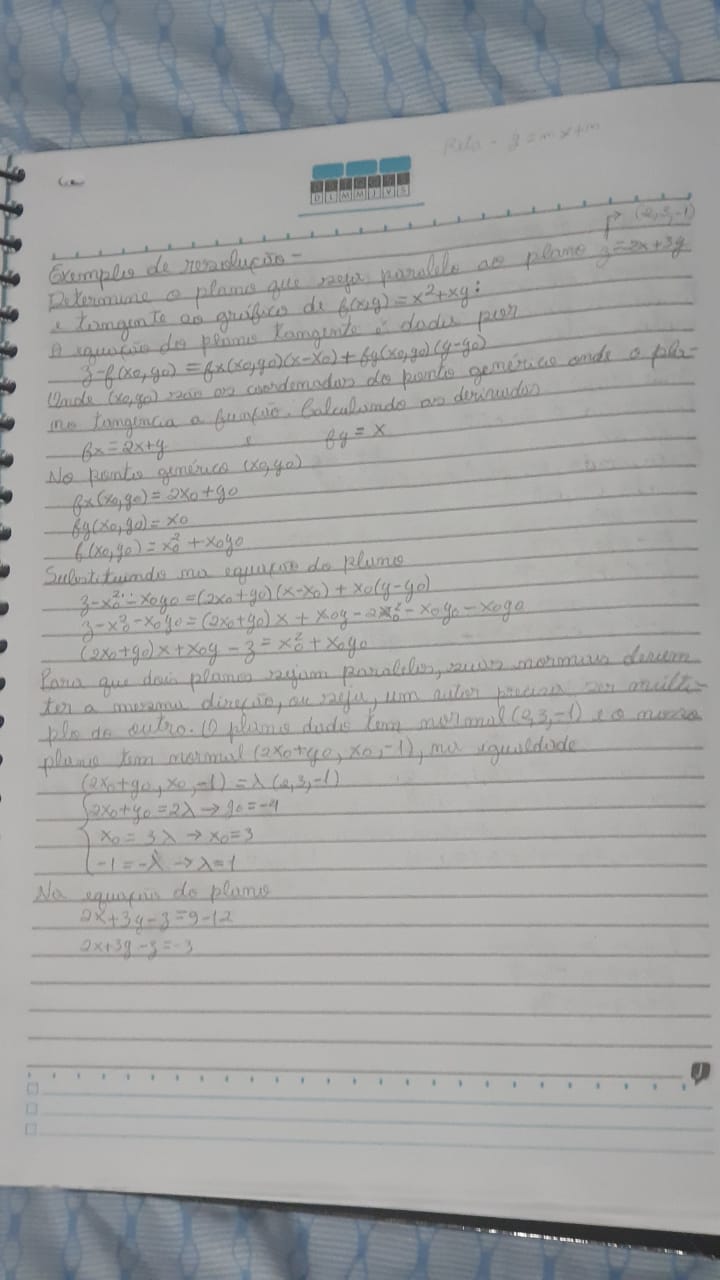 Reta - y = mx+n
D L M M J V S
(2,3,-1)
Exemplo de resolução-
Determine o plano que seja paralelo ao plano z=2x+3y
e tangente ao gráfico de f(x,y) = x²+xy:
A equação do plano tangente é dada por
z-f(x0,y0) = fx(x0,y0)(x-x0) + fy(x0,y0)(y-y0)
Onde (x0,y0) são as coordenadas do ponto genérico onde o pla-
no tangencia a função. Calculando as derivadas
fx=2x+y e fy = x
No ponto genérico (x0,y0)
fx(x0,y0) = 2x0+y0
fy(x0,y0) = x0
f(x0,y0) = x0² + x0y0
Substituindo na equação do plano
z-x0²-x0y0 = (2x0+y0)(x-x0) + x0(y-y0)
z-x0²-x0y0 = (2x0+y0)x + x0y - 2x0² - x0y0 - x0y0
(2x0+y0)x + x0y - z = x0² + x0y0
Para que dois planos sejam paralelos, suas normais devem
ter a mesma direção, ou seja, um vetor precisa ser múlti-
plo do outro. O plano dado tem normal (2,3,-1) e o nosso
plano tem normal (2x0+y0, x0,-1), na igualdade
(2x0+y0, x0, -1) = λ (2,3,-1)
2x0+y0 = 2λ → y0=-4
x0 = 3λ → x0=3
-1 = -λ → λ=1
Na equação do plano
2x+3y-z=9-12
2x+3y-z=-3